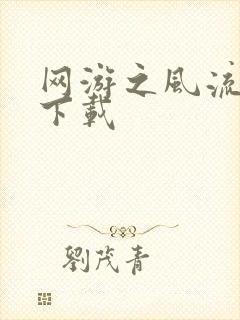 网游之风流
下载
劉茂青